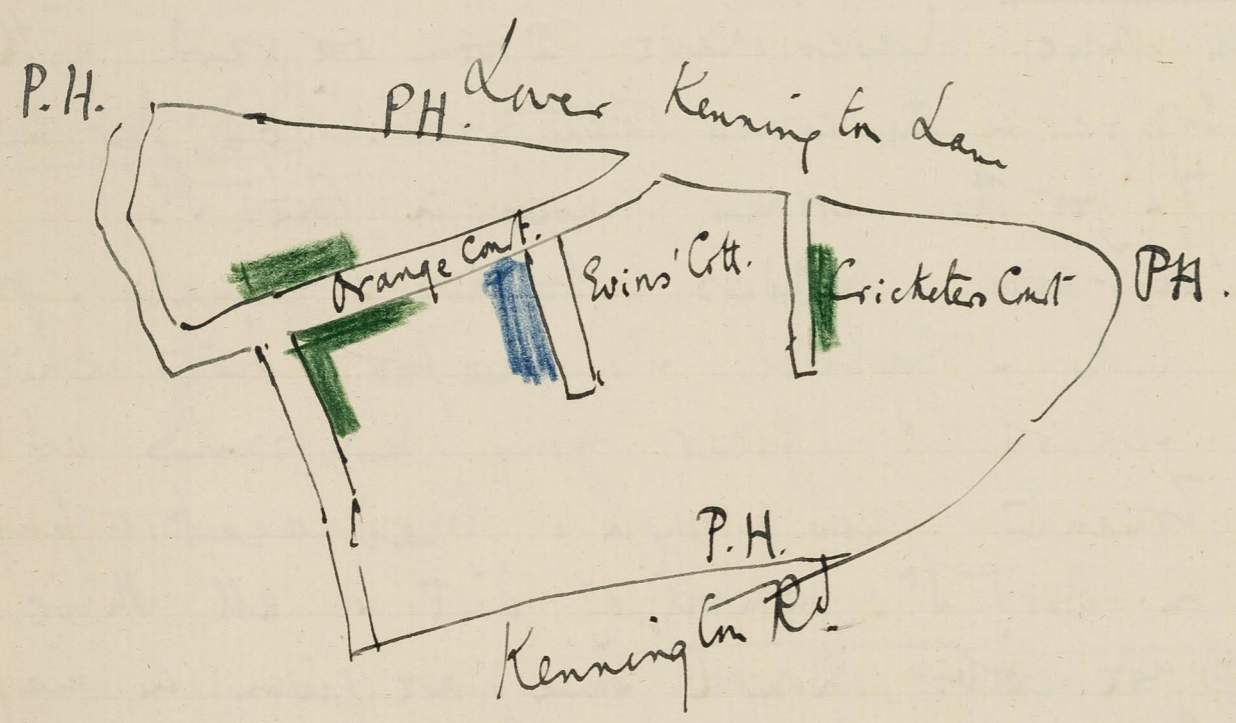 P.H.
PH.
Lower Kennington Lane
Orange Court.
Evins' Cott.
Cricketers Court
PH.
P.H.
Kennington Rd.